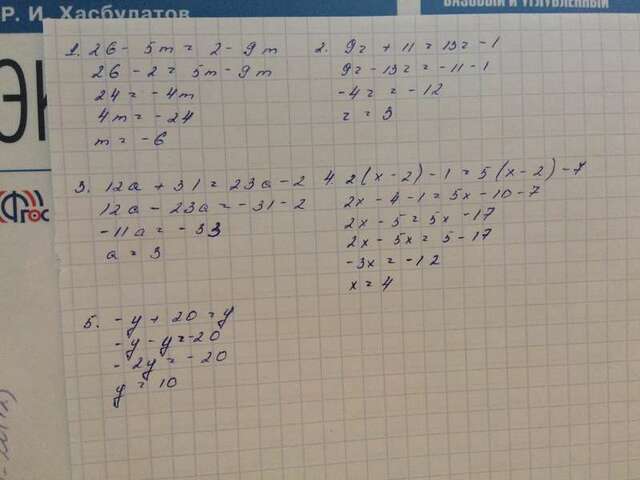 Р. И. Хасбулатов
БАЗОВЫЙ И УГЛУБЛЕННЫЙ
ЭК
ФГОС
1. 26 - 5m = 2 - 9m
26 - 2 = 5m - 9m
24 = -4m
4m = -24
m = -6
2. 9z + 11 = 13z - 1
9z - 13z = -11 - 1
-4z = -12
z = 3
3. 12a + 31 = 23a - 2
12a - 23a = -31 - 2
-11a = -33
a = 3
4. 2(x - 2) - 1 = 5(x - 2) - 7
2x - 4 - 1 = 5x - 10 - 7
2x - 5 = 5x - 17
2x - 5x = 5 - 17
-3x = -12
x = 4
5. -y + 20 = y
-y - y = -20
-2y = -20
y = 10